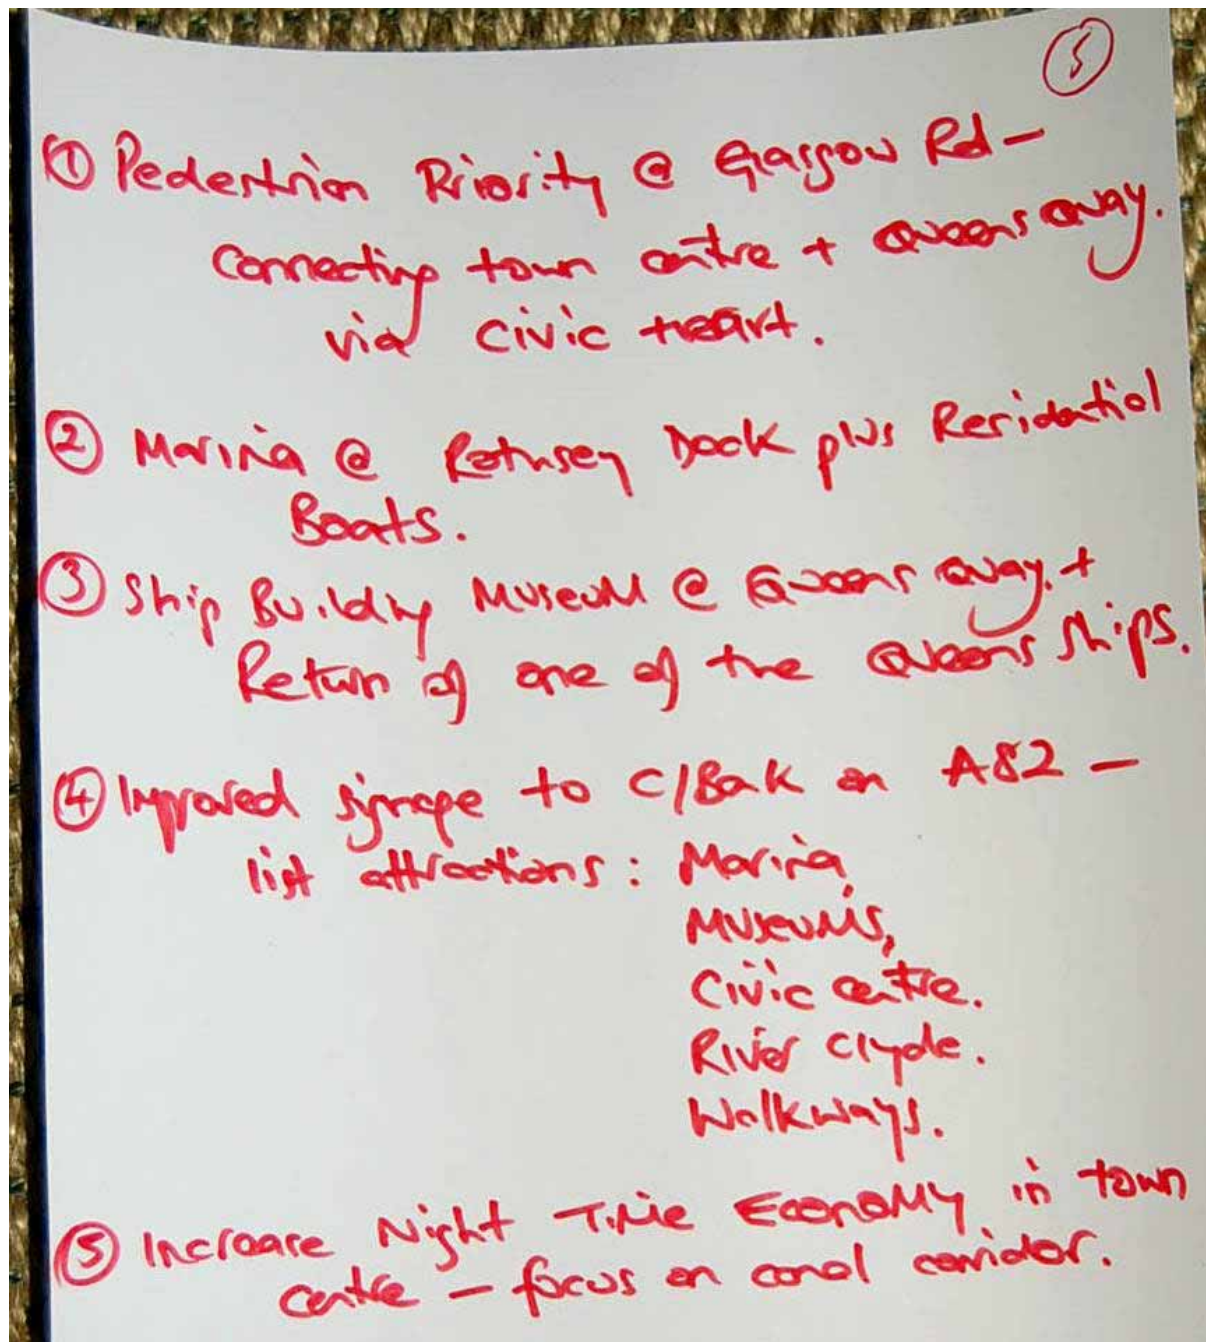 5
① Pedestrian Priority @ Glasgow Rd -
Connecting town centre + Queens Quay.
via Civic Heart.
② Marina @ Rothesey Dock plus Residential
Boats.
③ Ship Building Museum @ Queens Quay. +
Return of one of the Queens Ships.
④ Improved signage to C/Bank on A82 -
list attractions: Marina,
Museums,
Civic centre.
River Clyde.
Walkways.
⑤ Increase Night Time Economy in town
centre - focus on canal corridor.